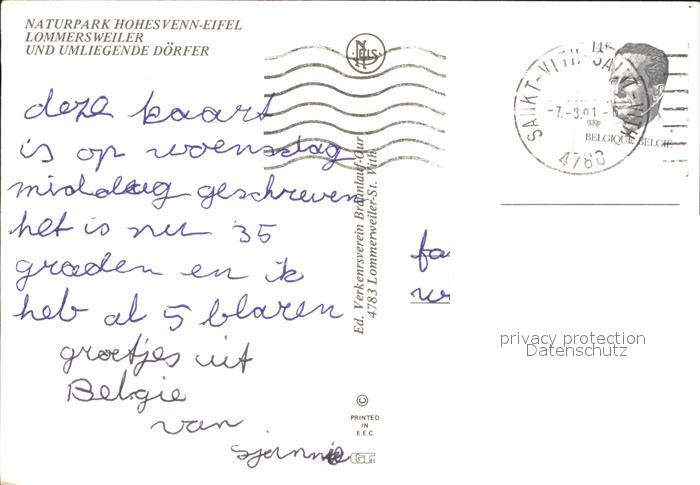 NATURPARK HOHESVENN-EIFEL
LOMMERSWEILER
UND UMLIEGENDE DÖRFER
deze kaart
is op woensdag
middag geschreven
het is nu 35
graden en ik
heb al 5 blaren
groetjes uit
Belgie
van
Sjannie
Ed. Verkehrsverein Braunlauf-Our
4783 Lommersweiler-St. Vith
NELS
©
PRINTED
IN
E.E.C.
GT
SANKT-VITH
4780
BELGIQUE BELGIË
fa
privacy protection
Datenschutz